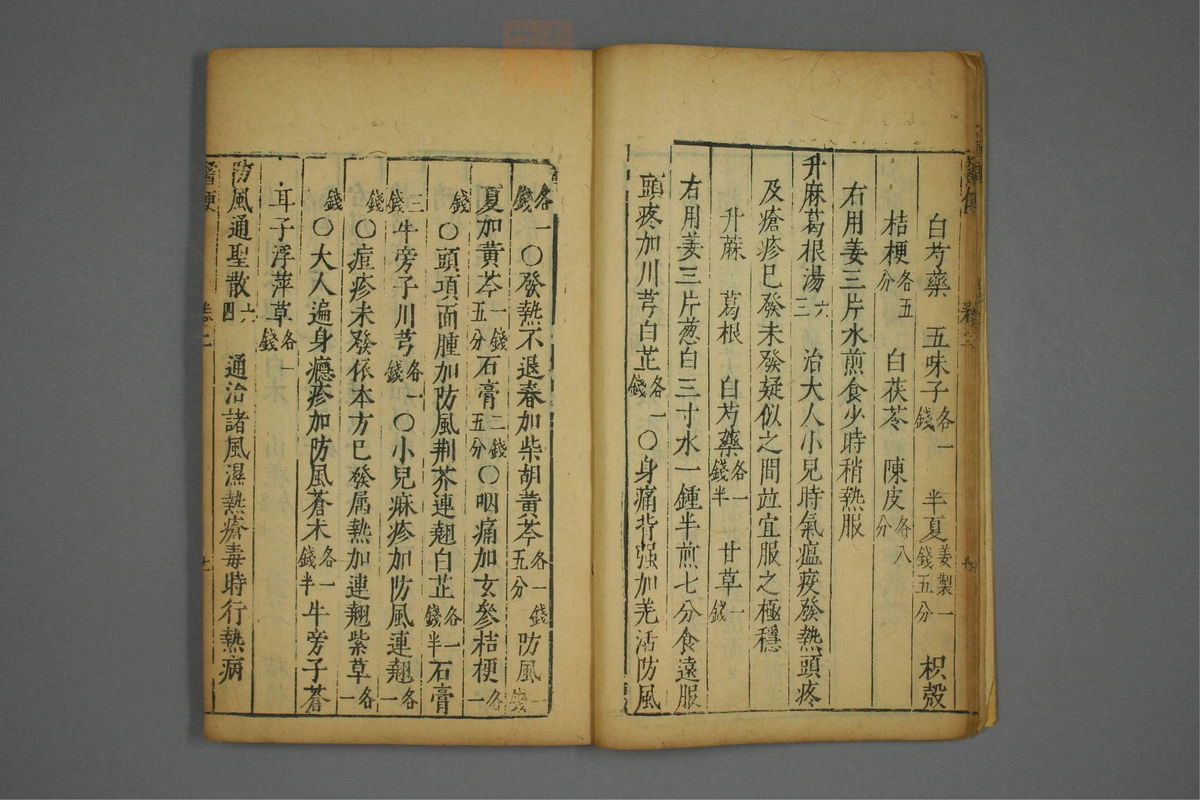 白芍藥 五味子各一錢 半夏姜製一錢五分 枳殼
桔梗各五分 白茯苓 陳皮各八分
右用姜三片水煎食少時稍熱服
升麻葛根湯六三 治大人小兒時氣瘟疫發熱頭疼
及瘡疹已發未發疑似之間並宜服之極穩
升蔴 葛根 白芍藥各一錢半 甘草一錢
右用姜三片葱白三寸水一鍾半煎七分食遠服
頭疼加川芎白芷各一錢〇身痛背强加羌活防風
各一錢〇發熱不退春加柴胡黃芩各一錢五分防風一錢
夏加黃芩一錢五分石膏二錢五分〇咽痛加玄參桔梗各一
錢〇頭項面腫加防風荆芥連翹白芷各一錢半石膏
三錢牛旁子川芎各一錢〇小兒麻疹加防風連翹各一
錢〇痘疹未發依本方已發属熱加連翹紫草各一
錢〇大人遍身癮疹加防風蒼术各一錢半牛旁子蒼
耳子浮萍草各一錢
防風通聖散六四 通治諸風濕熱瘡毒時行熱病
卷二